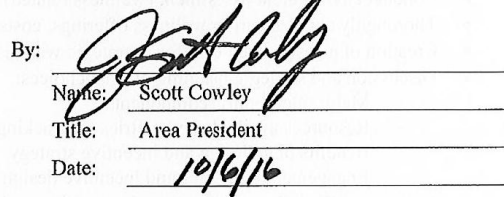 By:
Name: Scott Cowley
Title: Area President
Date: 10/6/16